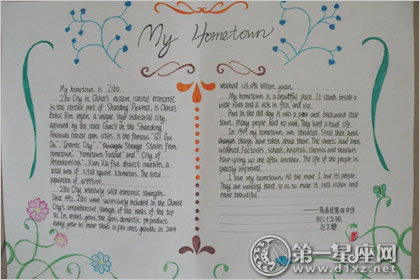 My Hometown
My hometown is Zibo.
Zibo City is China's modern coastal economic
in the middle part of Shandong Province, is China's
Bohai Rim region, a unique style industrial city,
approved by the state Council in the Shandong
Peninsula coast open cities, is the famous "Qi Guo
Du", "Ceramic City",
hometown", "Hometown Football" and "City of
Xian Xia five district counties, a
total area of square kilometers. The total
population of
Zibo City relatively solid economic strength.
Since 1992, Zibo went successively included in the Chinese
City's comprehensive strength of the ranks of the top
50. In recent years, the Gross domestic product
every year to more than 10 per cent growth. In 2004
reached billion yuan.
My hometown is a beautiful place. It stands beside a
wide river and is rich in fish and rice.
But in the old day it was a poor and backward little
town. Many people had no work. They lived a hard life.
In 1949 my hometown was liberated. Since then great
changes have taken place there. The streets have been
widened. Factories, schools, hospitals, cinemas and theatres
have sprung up one after another. The life of the people is
greatly improved.
I love my hometown. All the more I love its people.
They are working hard so as to make it still richer
and more beautiful.
第一星座网
www.d1xz.net